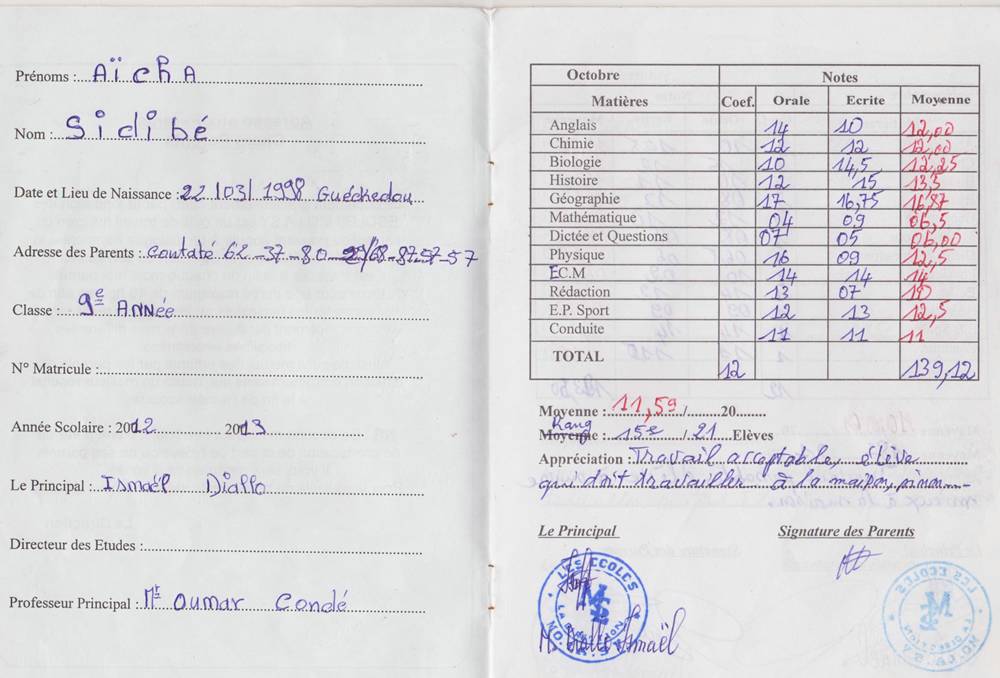 Prénoms : Aïcha
Nom : Sidibé
Date et Lieu de Naissance : 22/03/1998 Guéckedou
Adresse des Parents : 62-37-80-29/68-87-57-57
Classe : 9e Année
N° Matricule :
Année Scolaire : 2012 2013
Le Principal : Ismaël Diallo
Directeur des Etudes :
Professeur Principal : Mr Oumar Condé
Octobre Notes
Matières Coef. Orale Ecrite Moyenne
Anglais 14 10 12,00
Chimie 12 12 12,00
Biologie 10 14,5 12,25
Histoire 12 15 13,5
Géographie 17 16,75 16,87
Mathématique 04 09 06,5
Dictée et Questions 07 05 06,00
Physique 16 09 12,5
E.C.M 14 14 14
Rédaction 13 07 10
E.P. Sport 12 13 12,5
Conduite 11 11 11
TOTAL 12 139,12
Moyenne : 11,59 / 20
Rang
Moyenne : 15e / 21 Elèves
Appréciation : Travail acceptable, élève
qui doit travailler à la maison, sinon
Le Principal Signature des Parents
LES ECOLES
LA DIRECTION
MO.LA.S.V
M. Diallo Ismaël
LES ECOLES
LA DIRECTION
MO.LA.S.V